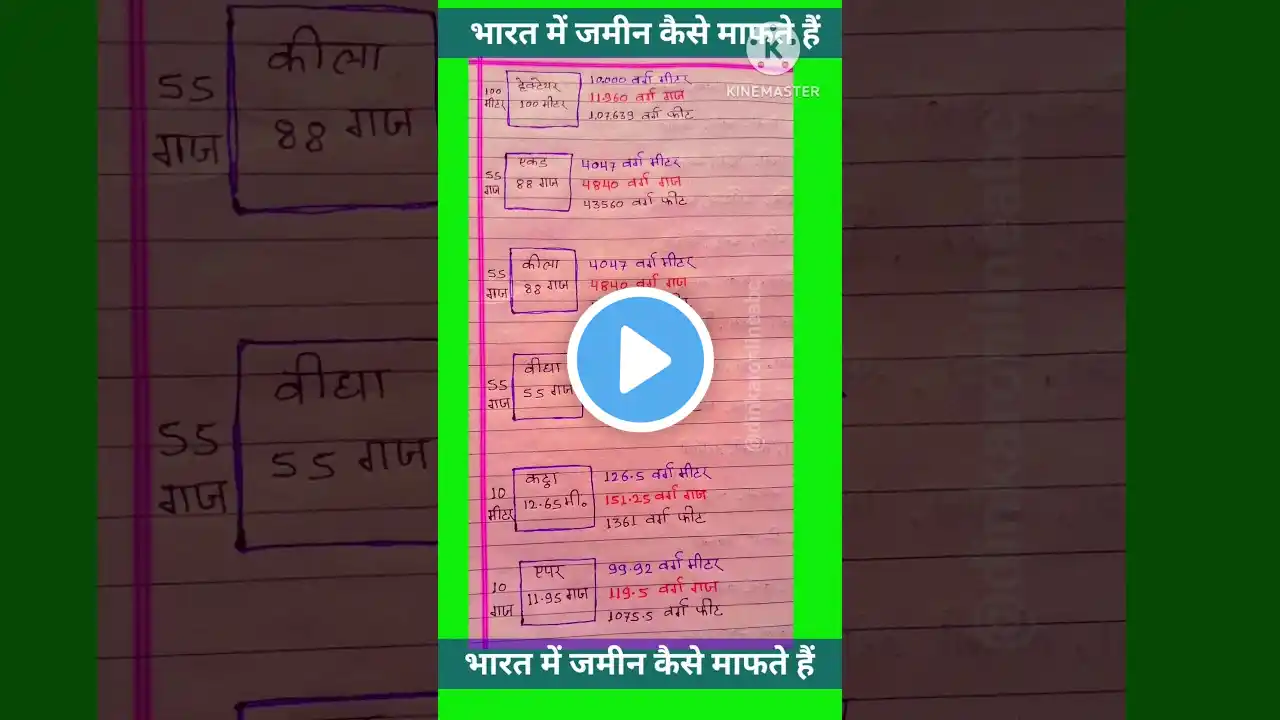 भारत में जमीन कैसे माफते हैं
KINEMASTER
K
हेक्टेयर
100 मीटर
100
मीटर
10,000 वर्ग मीटर
11960 वर्ग गज
107639 वर्ग फीट
एकड
88 गज
55
गज
4047 वर्ग मीटर
4840 वर्ग गज
43560 वर्ग फीट
कीला
88 गज
55
गज
4047 वर्ग मीटर
4840 वर्ग गज
बीघा
55 गज
55
गज
कट्ठा
12.65 मी.
10
मीटर
126.5 वर्ग मीटर
151.25 वर्ग गज
1361 वर्ग फीट
एयर
11.95 गज
10
गज
99.92 वर्ग मीटर
119.5 वर्ग गज
1075.5 वर्ग फीट
भारत में जमीन कैसे माफते हैं
कीला
88 गज
55
गज
बीघा
55 गज
55
गज